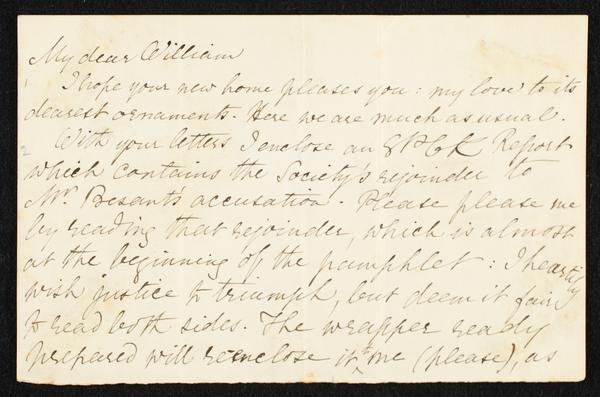 My dear William
I hope your new home pleases you: my love to its
dearest ornaments. Here we are much as usual.
With your letters I enclose an SPCK Report
which contains the Society's rejoinder to
Mr. Besant's accusation. Please please me
by reading that rejoinder, which is almost
at the beginning of the pamphlet: I heartily
wish justice to triumph, but deem it fair
to read both sides. The wrapper ready
prepared will reenclose it to me (please), as